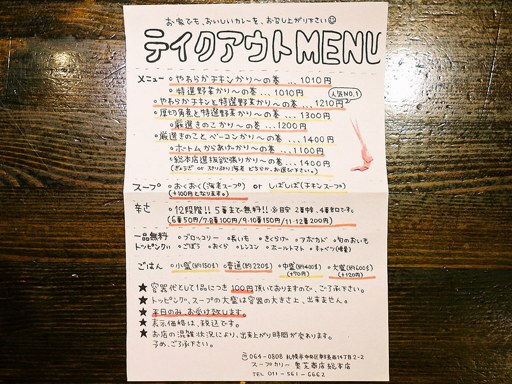 お家でも、おいしいカレーを、お召し上がり下さい☺
テイクアウトMENU
メニュー ○やわらかチキンかり〜の巻 ... 1010円
○特選野菜かり〜の巻 ... 1010円
人気NO.1
○やわらかチキンと特選野菜かり〜の巻 ... 1210円
○厚切角煮と特選野菜かり〜の巻 ... 1300円
○厳選きのこかり〜の巻 ... 1200円
○厳選きのことベーコンかり〜の巻 ... 1400円
○ホットムからあげかり〜の巻 ... 1100円
○総本店選抜欲張りかり〜の巻 ... 1400円
スープ ○おくおく(海老スープ) or しょじしょば(チキンスープ)
(+100円となります。)
辛さ ○12段階!! 5番まで無料!! ※目安 2番中辛、4番辛口です。
(6番50円/7.8番100円/9.10番150円/11.12番200円)
一品無料トッピング ○ブロッコリー ○長いも ○きくらげ ○アボカド ○旬のおいも
○ごぼう ○おくら ○レンコン ○ホールトマト ○キャベツ(増量)
ごはん ○小盛(約150g) ○普通(約220g) ○中盛(約400g) ○大盛(約600g)
(+70円) (+120円)
★ 容器代として1品につき100円頂いておりますので、ご了承下さい。
★ トッピング、スープの大盛は容器の大きさ上、出来ません。
★ 当日のみ、お受け致します。
★ 表示価格は、税込です。
★ お店の混雑状況により、出来上がり時間が変わります。
予め、ご了承下さい。
〒064-0808 札幌市中央区南8条西14丁目2-2
スープカリー 奥芝商店 総本店
TEL 011-561-6662